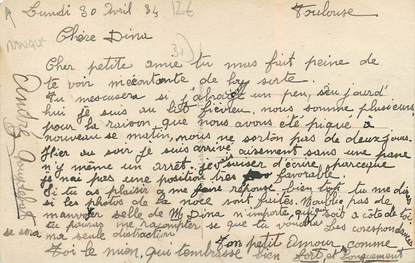 Lundi 30 Avril 84
Toulouse
Chère Dina
Cher petite amie tu mas fait peine de
te voir mécontante de la sorte.
Tu mescusera si j'abrège un peu, seu jourd'
hui je suis au lit fièvreu, nous somme plusieurs
pour la raison que nous avons été piqué a
nouveau se matin, nous ne sorton pas de deux jours.
Hier au soir je suis arrivé aisement sans une pane
n'y même un arrêt. Je m'escuser d'écrire, parceque
je nai pas une position très favorable.
Si tu as plaisir a me faire reponse bien tot tu me dis
si les photos de la noce sont faites. Noublie pas de
manvoyer selle de Mlle Dina n'importe, qu'elle soit a côté de toi
tu pouras me raconter se que tu voudra. Les corespondances
se sera ma seule distraction
Ton petit Amour comme
toi le mien, qui tembrasse bien fort et longuement